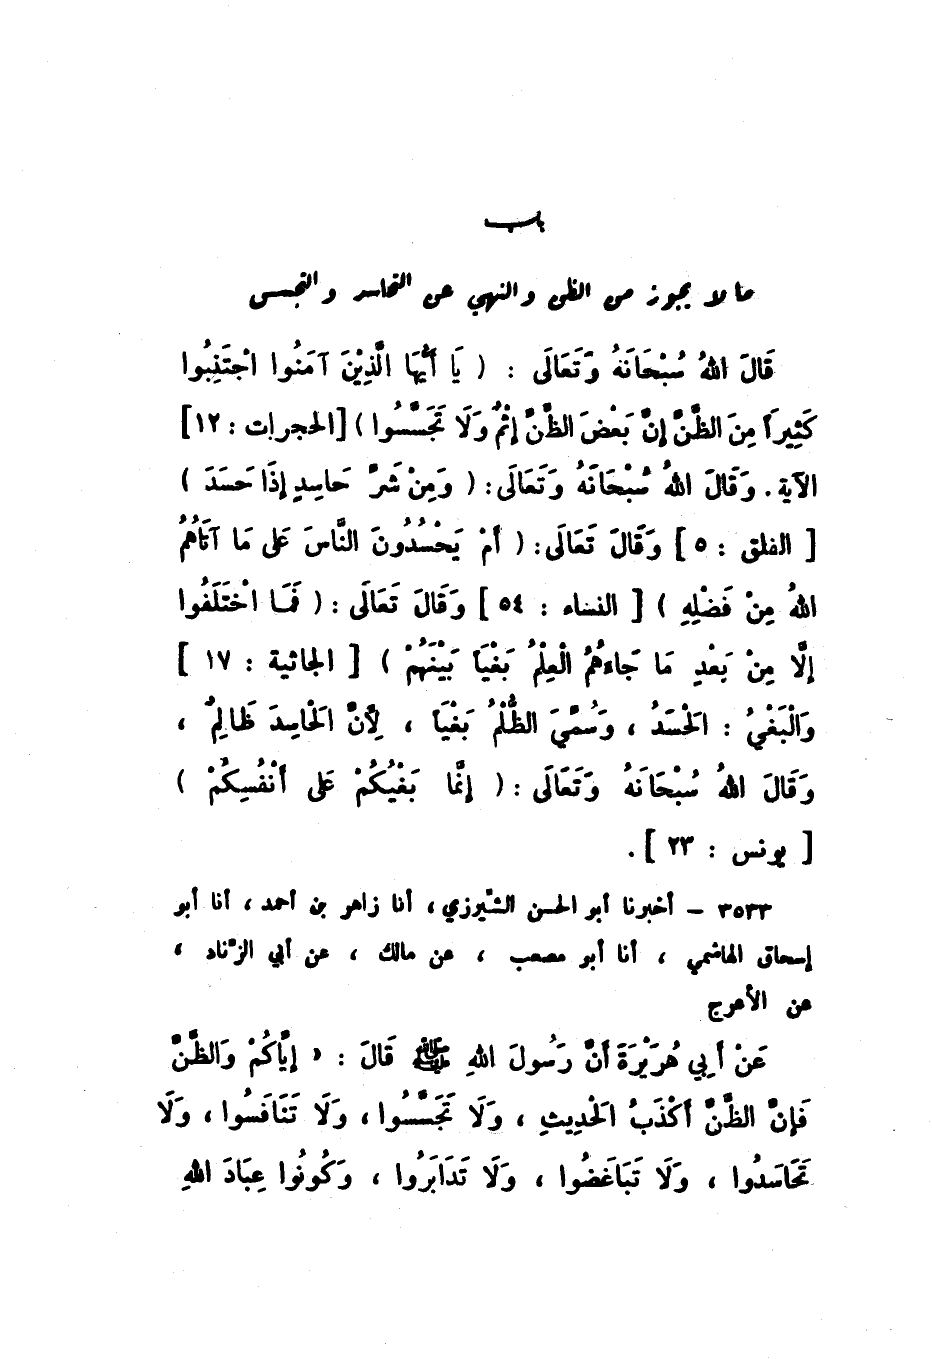 باب
ما لا يجوز من الظن والنهي عن التحاسد والتجسس
قَالَ اللهُ سُبْحَانَهُ وَتَعَالَى : ( يَا أَيُّهَا الَّذِيْنَ آمَنُوا اجْتَنِبُوا
كَثِيراً مِنَ الظَّنِّ إِنَّ بَعْضَ الظَّنِّ إِثْمٌ وَلَا تَجَسَّسُوا ) [الحجرات : ١٢]
الآية . وَقَالَ اللهُ سُبْحَانَهُ وَتَعَالَى : ( وَمِنْ شَرِّ حَاسِدٍ إِذَا حَسَدَ )
[ الفلق : ٥ ] وَقَالَ تَعَالَى : ( أَمْ يَحْسُدُونَ النَّاسَ عَلَى مَا آتَاهُمُ
اللهُ مِنْ فَضْلِهِ ) [ النساء : ٥٤ ] وَقَالَ تَعَالَى : ( فَمَا اخْتَلَفُوا
إِلَّا مِنْ بَعْدِ مَا جَاءَهُمُ الْعِلْمُ بَغْيَاً بَيْنَهُمْ ) [ الجاثية : ١٧ ]
وَالْبَغْيُ : الْحَسَدُ ، وَسُمِّيَ الظُّلْمُ بَغْيَاً ، لِأَنَّ الْحَاسِدَ ظَالِمٌ ،
وَقَالَ اللهُ سُبْحَانَهُ وَتَعَالَى : ( إِنَّمَا بَغْيُكُمْ عَلَى أَنْفُسِكُمْ )
[ يونس : ٢٣ ] .
٣٥٣٣ – أخبرنا أبو الحسن الشّيرزي ، أنا زاهر بن أحمد ، أنا أبو
إسحاق الهاشمي ، أنا أبو مصعب ، عن مالك ، عن أبي الزّناد ،
عن الأعرج
عَنْ أَبِي هُرَيْرَةَ أَنَّ رَسُولَ اللهِ ﷺ قَالَ : « إِيَّاكُمْ وَالظَّنَّ
فَإِنَّ الظَّنَّ أَكْذَبُ الْحَدِيثِ ، وَلَا تَجَسَّسُوا ، وَلَا تَنَافَسُوا ، وَلَا
تَحَاسَدُوا ، وَلَا تَبَاغَضُوا ، وَلَا تَدَابَرُوا ، وَكُونُوا عِبَادَ اللهِ